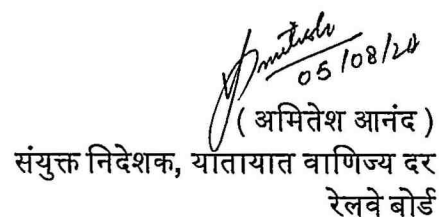 Amitesh
05/08/24
( अमितेश आनंद )
संयुक्त निदेशक, यातायात वाणिज्य दर
रेलवे बोर्ड